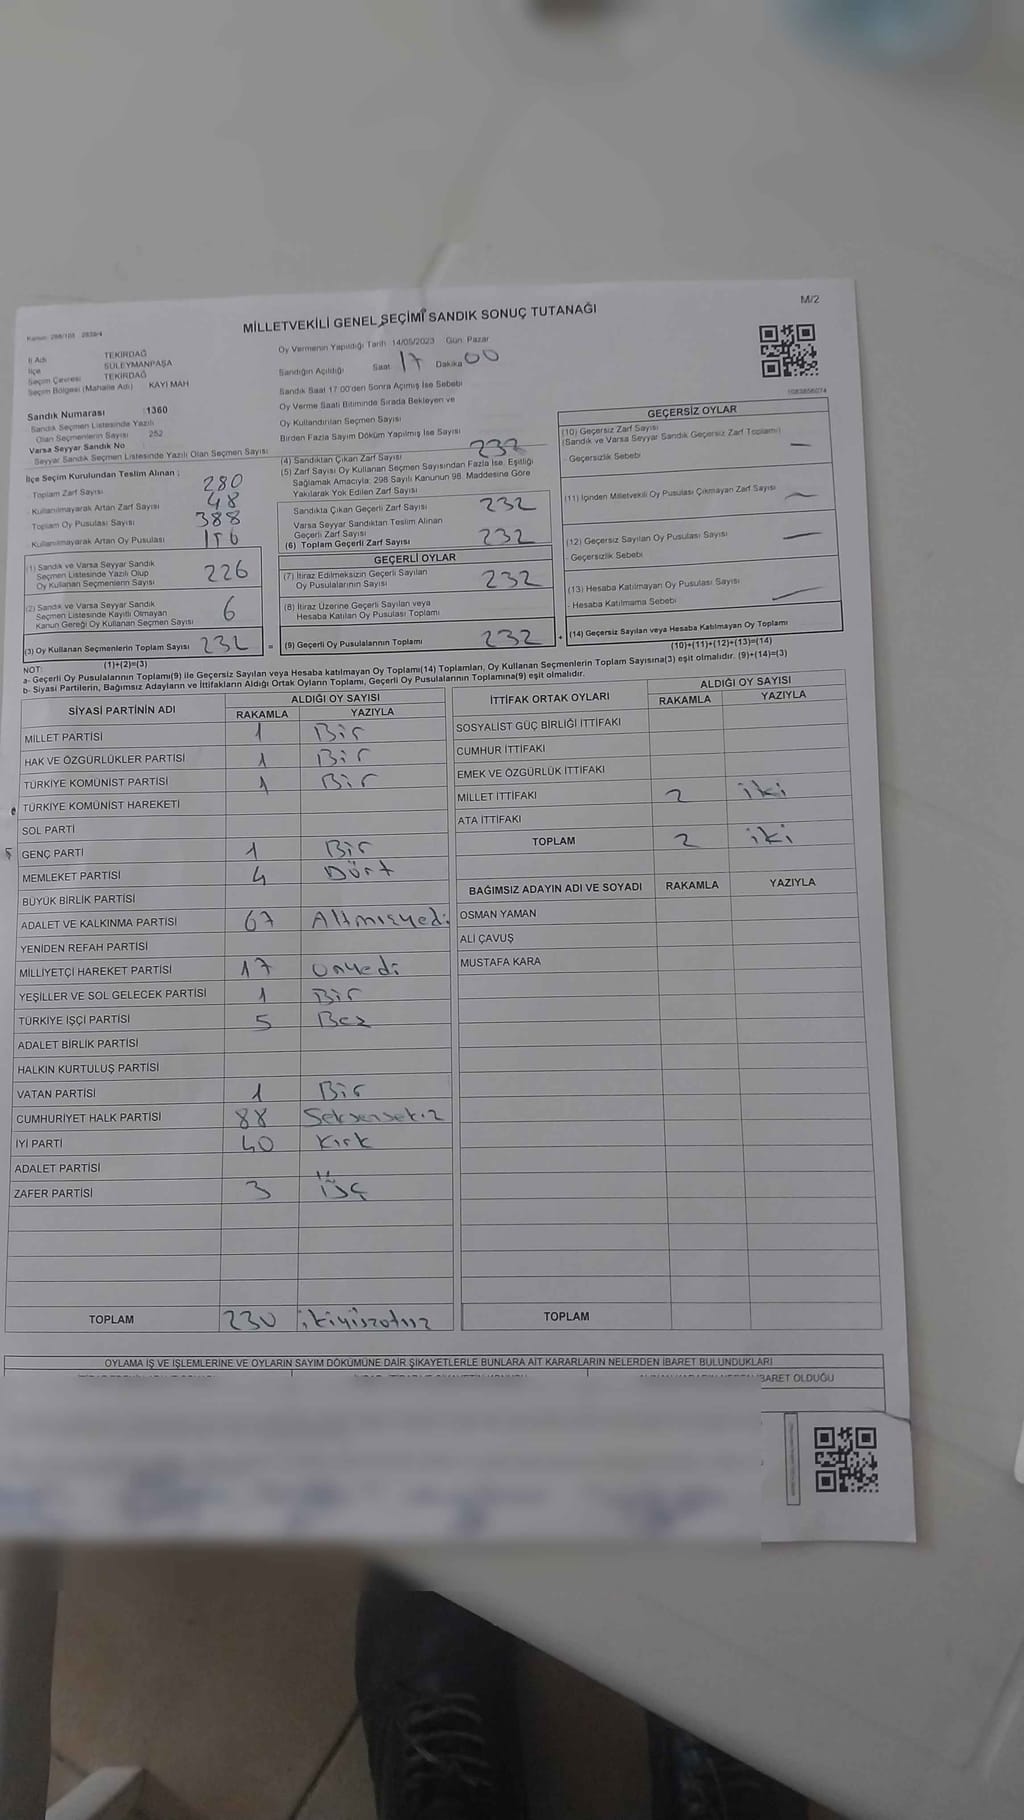 M/2
Kanun: 298/105 2839/4
MİLLETVEKİLİ GENEL SEÇİMİ SANDIK SONUÇ TUTANAĞI
İl Adı TEKİRDAĞ
İlçe SÜLEYMANPAŞA
Seçim Çevresi TEKİRDAĞ
Seçim Bölgesi (Mahalle Adı) KAYI MAH
Sandık Numarası :1360
Sandık Seçmen Listesinde Yazılı
Olan Seçmenlerin Sayısı 252
Varsa Seyyar Sandık No
Seyyar Sandık Seçmen Listesinde Yazılı Olan Seçmen Sayısı
Oy Vermenin Yapıldığı Tarih 14/05/2023 Gün Pazar
Sandığın Açıldığı Saat 17 Dakika 00
Sandık Saat 17:00'den Sonra Açımış İse Sebebi
Oy Verme Saati Bitiminde Sırada Bekleyen ve
Oy Kullandırılan Seçmen Sayısı
Birden Fazla Sayım Döküm Yapılmış İse Sayısı
1083856074
İlçe Seçim Kurulundan Teslim Alınan ;
Toplam Zarf Sayısı 280
Kullanılmayarak Artan Zarf Sayısı 48
Toplam Oy Pusulası Sayısı 388
Kullanılmayarak Artan Oy Pusulası 156
(1) Sandık ve Varsa Seyyar Sandık
Seçmen Listesinde Yazılı Olup
Oy Kullanan Seçmenlerin Sayısı 226
(2) Sandık ve Varsa Seyyar Sandık
Seçmen Listesinde Kayıtlı Olmayan
Kanun Gereği Oy Kullanan Seçmen Sayısı 6
(3) Oy Kullanan Seçmenlerin Toplam Sayısı 232 =
(1)+(2)=(3)
(4) Sandıktan Çıkan Zarf Sayısı 232
(5) Zarf Sayısı Oy Kullanan Seçmen Sayısından Fazla İse, Eşitliği
Sağlamak Amacıyla; 298 Sayılı Kanunun 98. Maddesine Göre
Yakılarak Yok Edilen Zarf Sayısı
Sandıkta Çıkan Geçerli Zarf Sayısı 232
Varsa Seyyar Sandıktan Teslim Alınan
Geçerli Zarf Sayısı
(6) Toplam Geçerli Zarf Sayısı 232
GEÇERLİ OYLAR
(7) İtiraz Edilmeksizin Geçerli Sayılan
Oy Pusulalarının Sayısı 232
(8) İtiraz Üzerine Geçerli Sayılan veya
Hesaba Katılan Oy Pusulası Toplamı
(9) Geçerli Oy Pusulalarının Toplamı 232 +
GEÇERSİZ OYLAR
(10) Geçersiz Zarf Sayısı
(Sandık ve Varsa Seyyar Sandık Geçersiz Zarf Toplamı) —
Geçersizlik Sebebi
(11) İçinden Milletvekili Oy Pusulası Çıkmayan Zarf Sayısı —
(12) Geçersiz Sayılan Oy Pusulası Sayısı —
Geçersizlik Sebebi
(13) Hesaba Katılmayan Oy Pusulası Sayısı —
Hesaba Katılmama Sebebi
(14) Geçersiz Sayılan veya Hesaba Katılmayan Oy Toplamı
(10)+(11)+(12)+(13)=(14)
NOT:
a- Geçerli Oy Pusulalarının Toplamı(9) ile Geçersiz Sayılan veya Hesaba katılmayan Oy Toplamı(14) Toplamları, Oy Kullanan Seçmenlerin Toplam Sayısına(3) eşit olmalıdır. (9)+(14)=(3)
b- Siyasi Partilerin, Bağımsız Adayların ve İttifakların Aldığı Ortak Oyların Toplamı, Geçerli Oy Pusulalarının Toplamına(9) eşit olmalıdır.
SİYASİ PARTİNİN ADI ALDIĞI OY SAYISI
RAKAMLA YAZIYLA
MİLLET PARTİSİ 1 Bir
HAK VE ÖZGÜRLÜKLER PARTİSİ 1 Bir
TÜRKİYE KOMÜNİST PARTİSİ 1 Bir
TÜRKİYE KOMÜNİST HAREKETİ
SOL PARTİ
GENÇ PARTİ 1 Bir
MEMLEKET PARTİSİ 4 Dört
BÜYÜK BİRLİK PARTİSİ
ADALET VE KALKINMA PARTİSİ 67 Altmışyedi
YENİDEN REFAH PARTİSİ
MİLLİYETÇİ HAREKET PARTİSİ 17 onyedi
YEŞİLLER VE SOL GELECEK PARTİSİ 1 Bir
TÜRKİYE İŞÇİ PARTİSİ 5 Beş
ADALET BİRLİK PARTİSİ
HALKIN KURTULUŞ PARTİSİ
VATAN PARTİSİ 1 Bir
CUMHURİYET HALK PARTİSİ 88 Seksensekiz
İYİ PARTİ 40 Kırk
ADALET PARTİSİ
ZAFER PARTİSİ 3 üç
TOPLAM 230 ikiyüzotuz
İTTİFAK ORTAK OYLARI ALDIĞI OY SAYISI
RAKAMLA YAZIYLA
SOSYALİST GÜÇ BİRLİĞİ İTTİFAKI
CUMHUR İTTİFAKI
EMEK VE ÖZGÜRLÜK İTTİFAKI
MİLLET İTTİFAKI 2 iki
ATA İTTİFAKI
TOPLAM 2 iki
BAĞIMSIZ ADAYIN ADI VE SOYADI RAKAMLA YAZIYLA
OSMAN YAMAN
ALİ ÇAVUŞ
MUSTAFA KARA
TOPLAM
OYLAMA İŞ VE İŞLEMLERİNE VE OYLARIN SAYIM DÖKÜMÜNE DAİR ŞİKAYETLERLE BUNLARA AİT KARARLARIN NELERDEN İBARET BULUNDUKLARI
BARET OLDUĞU